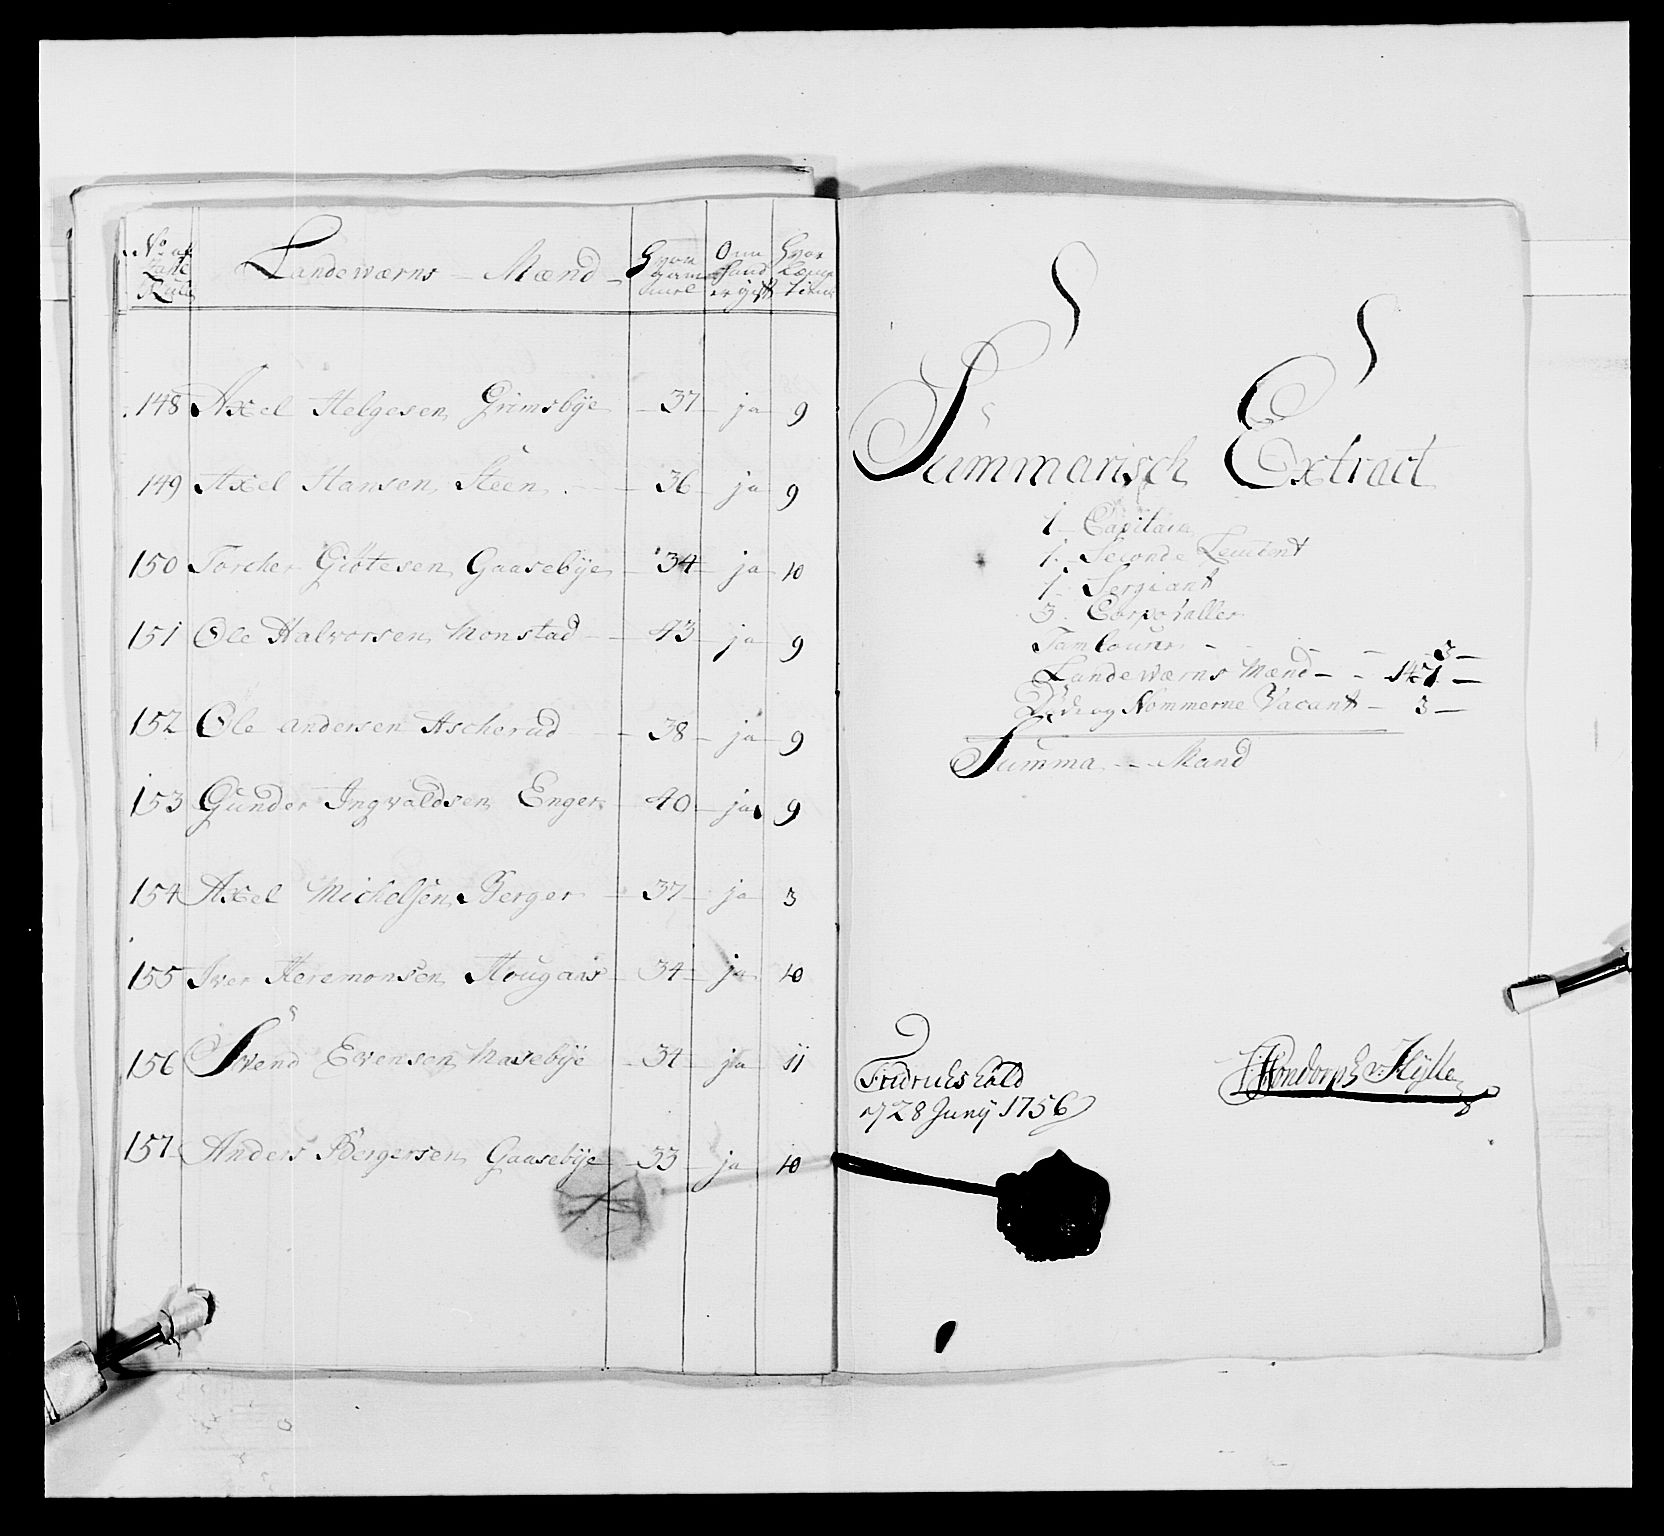 No af
Landewærns - Mænd
Hvor
Om
Hvor
er gift
148 Axel Helgesen Grimsbÿe - 37 - ja - 9
149 Axel Hansen Steen - 36 - ja - 9
150 Torcher Giötesen Gaasebÿe - 34 - ja - 10
151 Ole Halvorsen Monstad - 43 - ja - 9
152 Ole Andersen Ascherud - 38 - ja - 9
153 Gunder Ingvaldsen Enger - 40 - ja - 9
154 Axel Michelsen Berger - 37 - ja - 3
155 Iver Heremonsen Hougans - 34 - ja - 10
156 Svend Evensen Masebÿe - 34 - ja - 11
157 Anders Bergersen Gaasebÿe - 33 - ja - 10
Summarisch Extract
1 Capitain
1 Seconde Leutent
1 Sergiant
3 Corporaller
Tambourer - - 3 -
Landewærns Mænd - -
Nommerne Vacant - 3 -
Summa - - Mand
Fridrichshald
28 Junÿ 1756